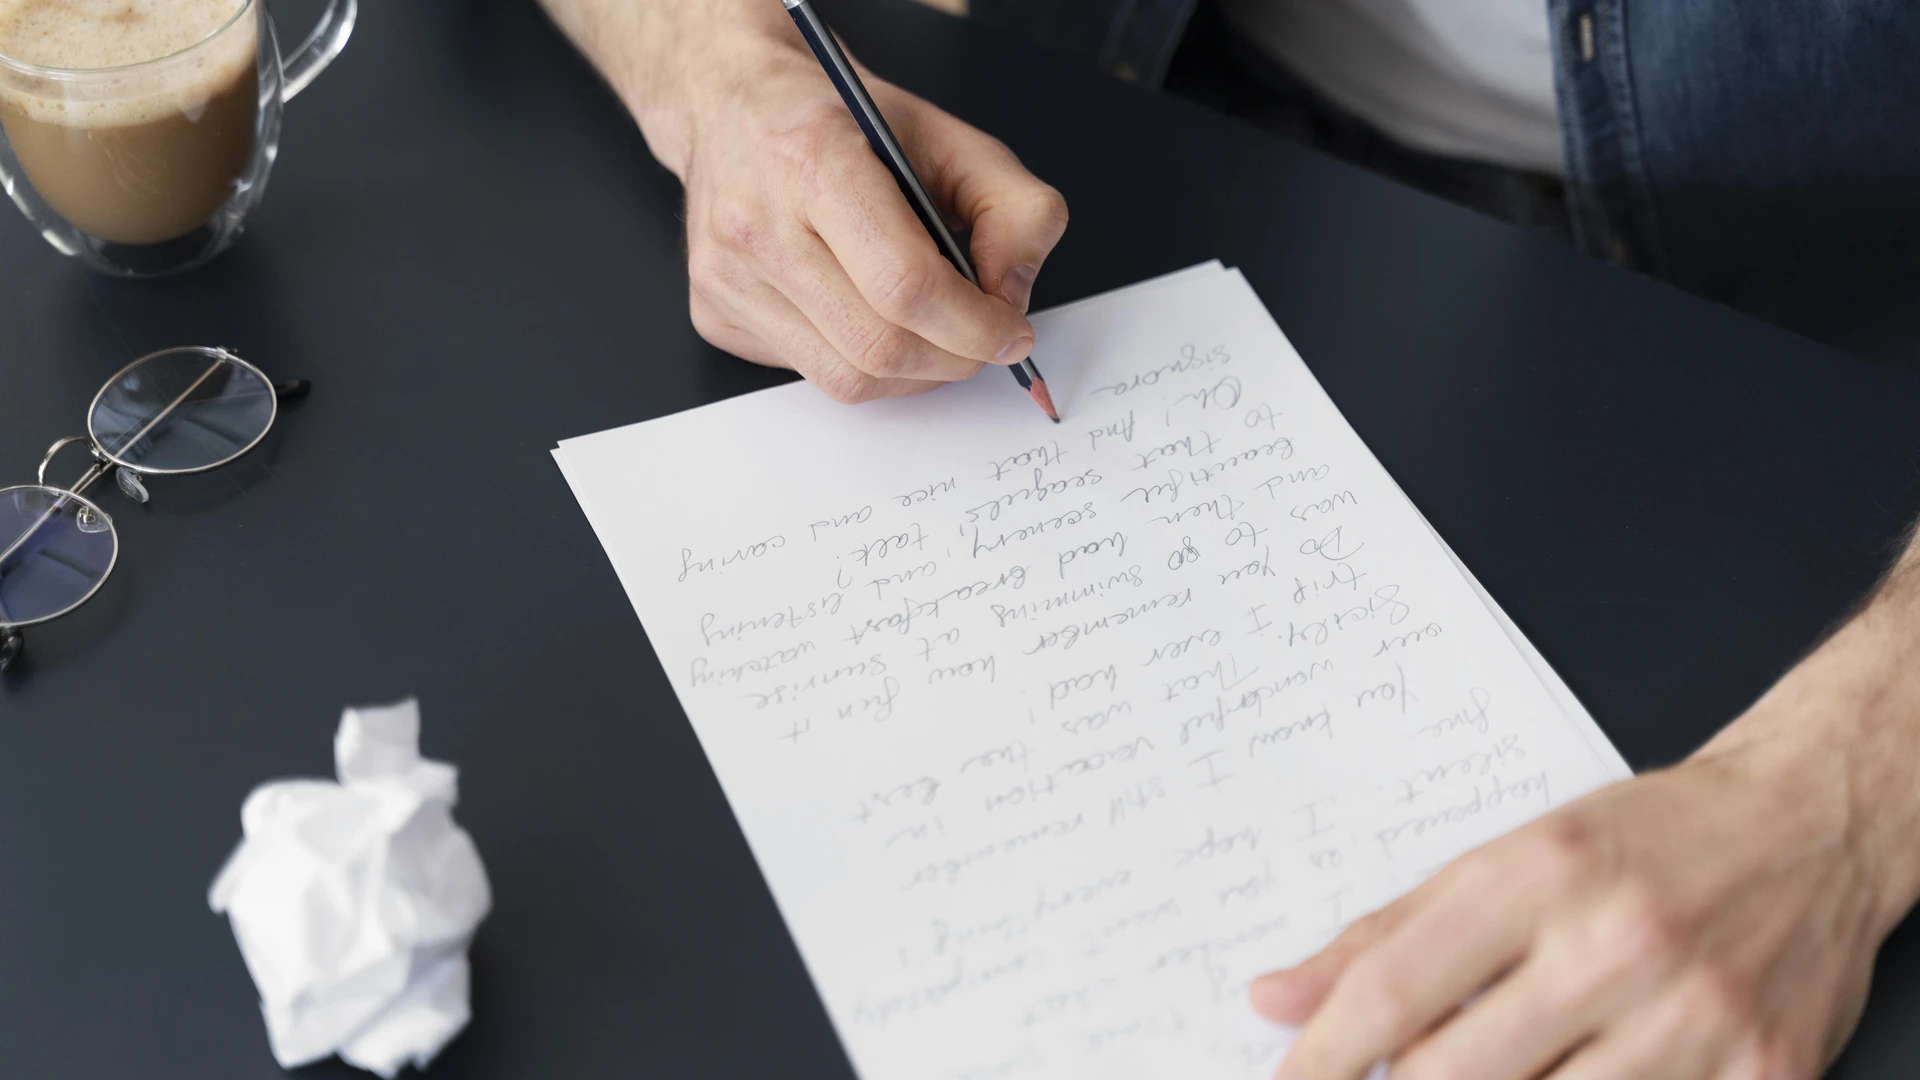 time
I wonder what
happened, as you went completely
silent. I hope everything's
fine.
You know I still remember
our wonderful vacation in
Sicily. That was the best
trip I ever had!
Do you remember how fun it
was to go swimming at sunrise
and then had breakfast watching
beautiful scenery, and listening
to that seagulls' talk?
Oh! And that nice and caring
signora